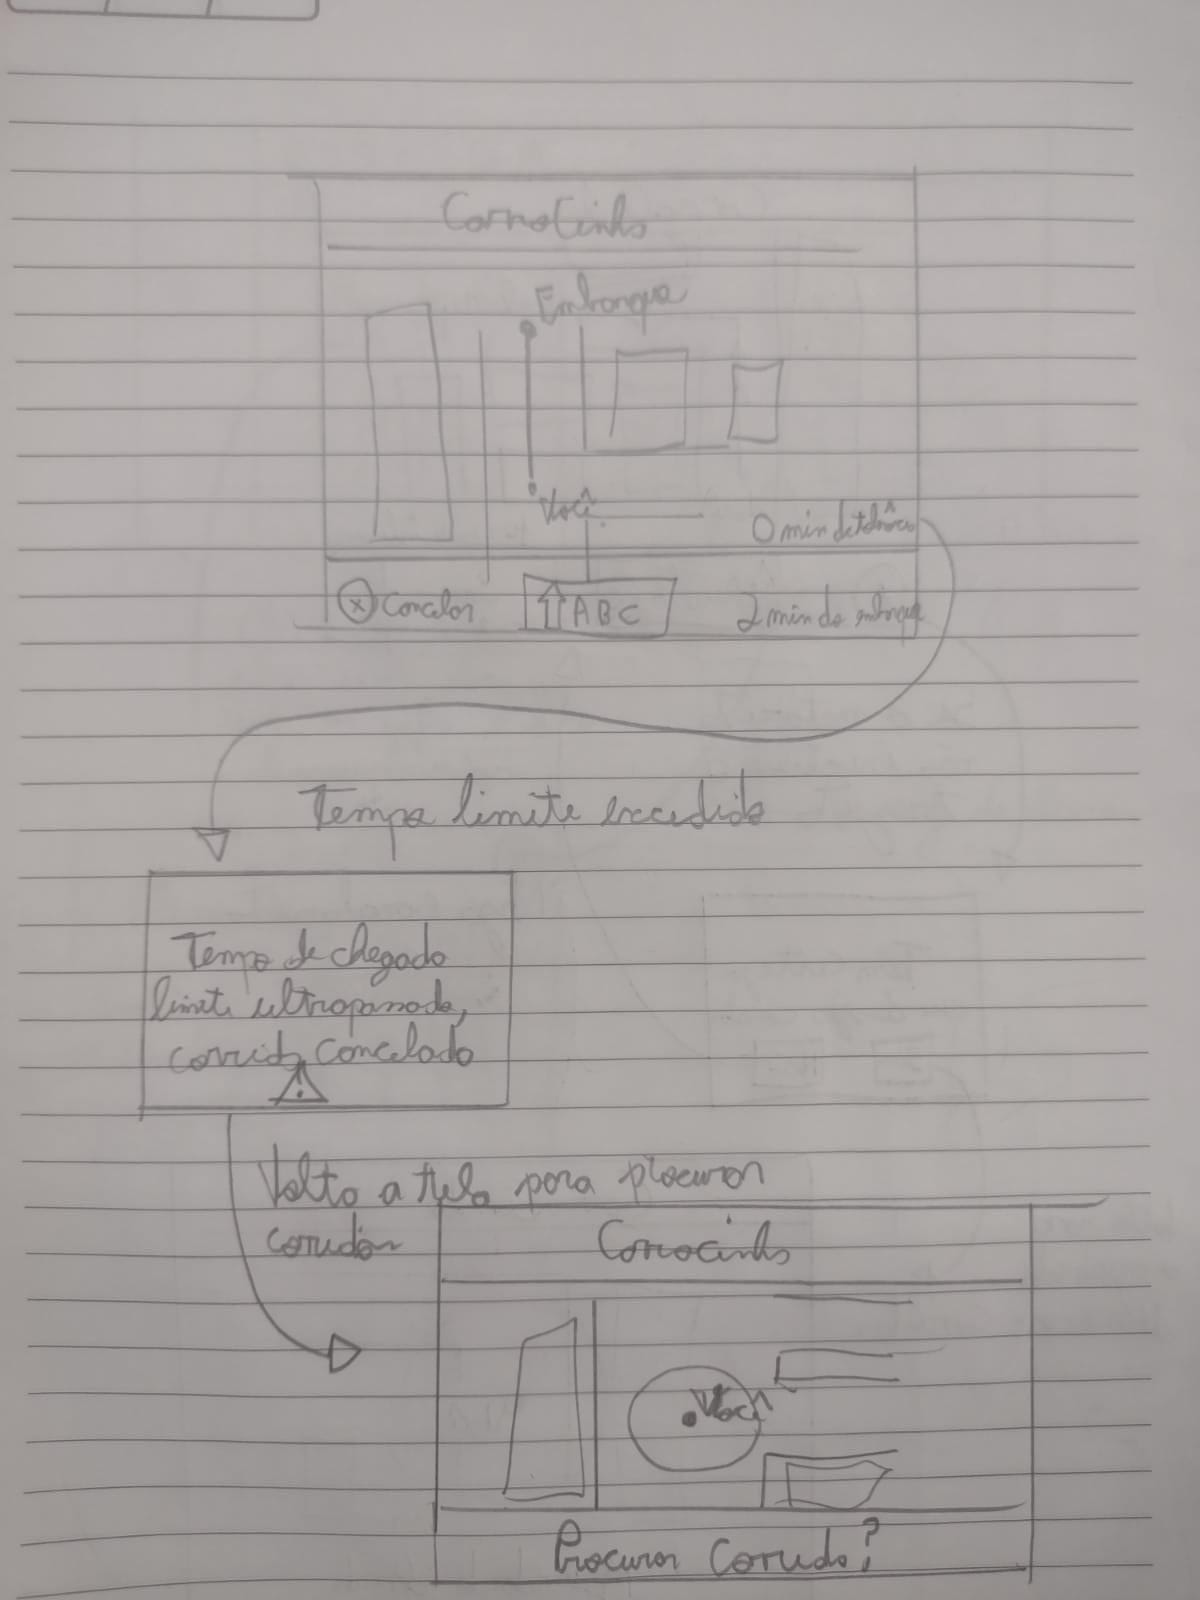 Carrocinho
Embarque
Você
0 min de tolerância
X Cancelar
ABC
2 min do embarque
Tempo limite excedido
Tempo de chegada
limite ultrapassado,
corrida cancelada
!
Volta a tela para procurar
corridas
Carrocinho
Você
Procurar Corrida?